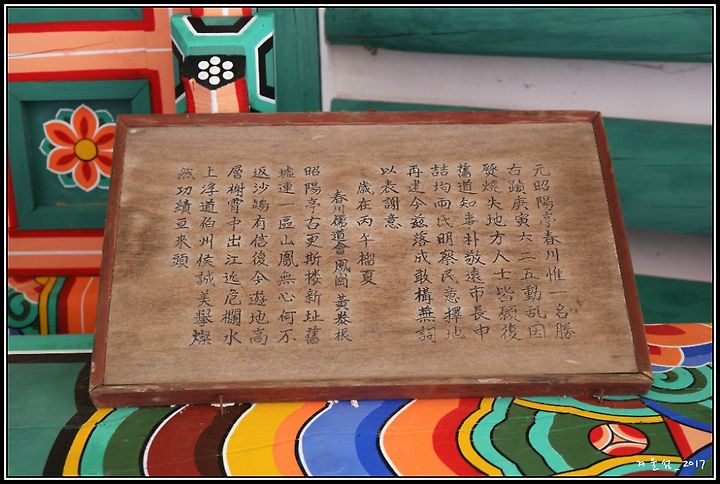 元昭陽亭春川惟一名勝
古蹟庚寅六二五動乱因
燹燒失地方人士皆願復
舊道知事朴敬遠市長申
喆均両氏明察民意擇地
再建今玆落成敢構蕪詞
以表謝意
歲在丙午榴夏
春川儒道會鳳崗 黃泰根
昭陽亭古更斯楼新址舊
墟連一區山鳳無心何不
返沙鷗有信復今遊地高
層榭霄中出江近危欄水
上浮道伯州侯誠美擧燦
然功績亘來頭
2017